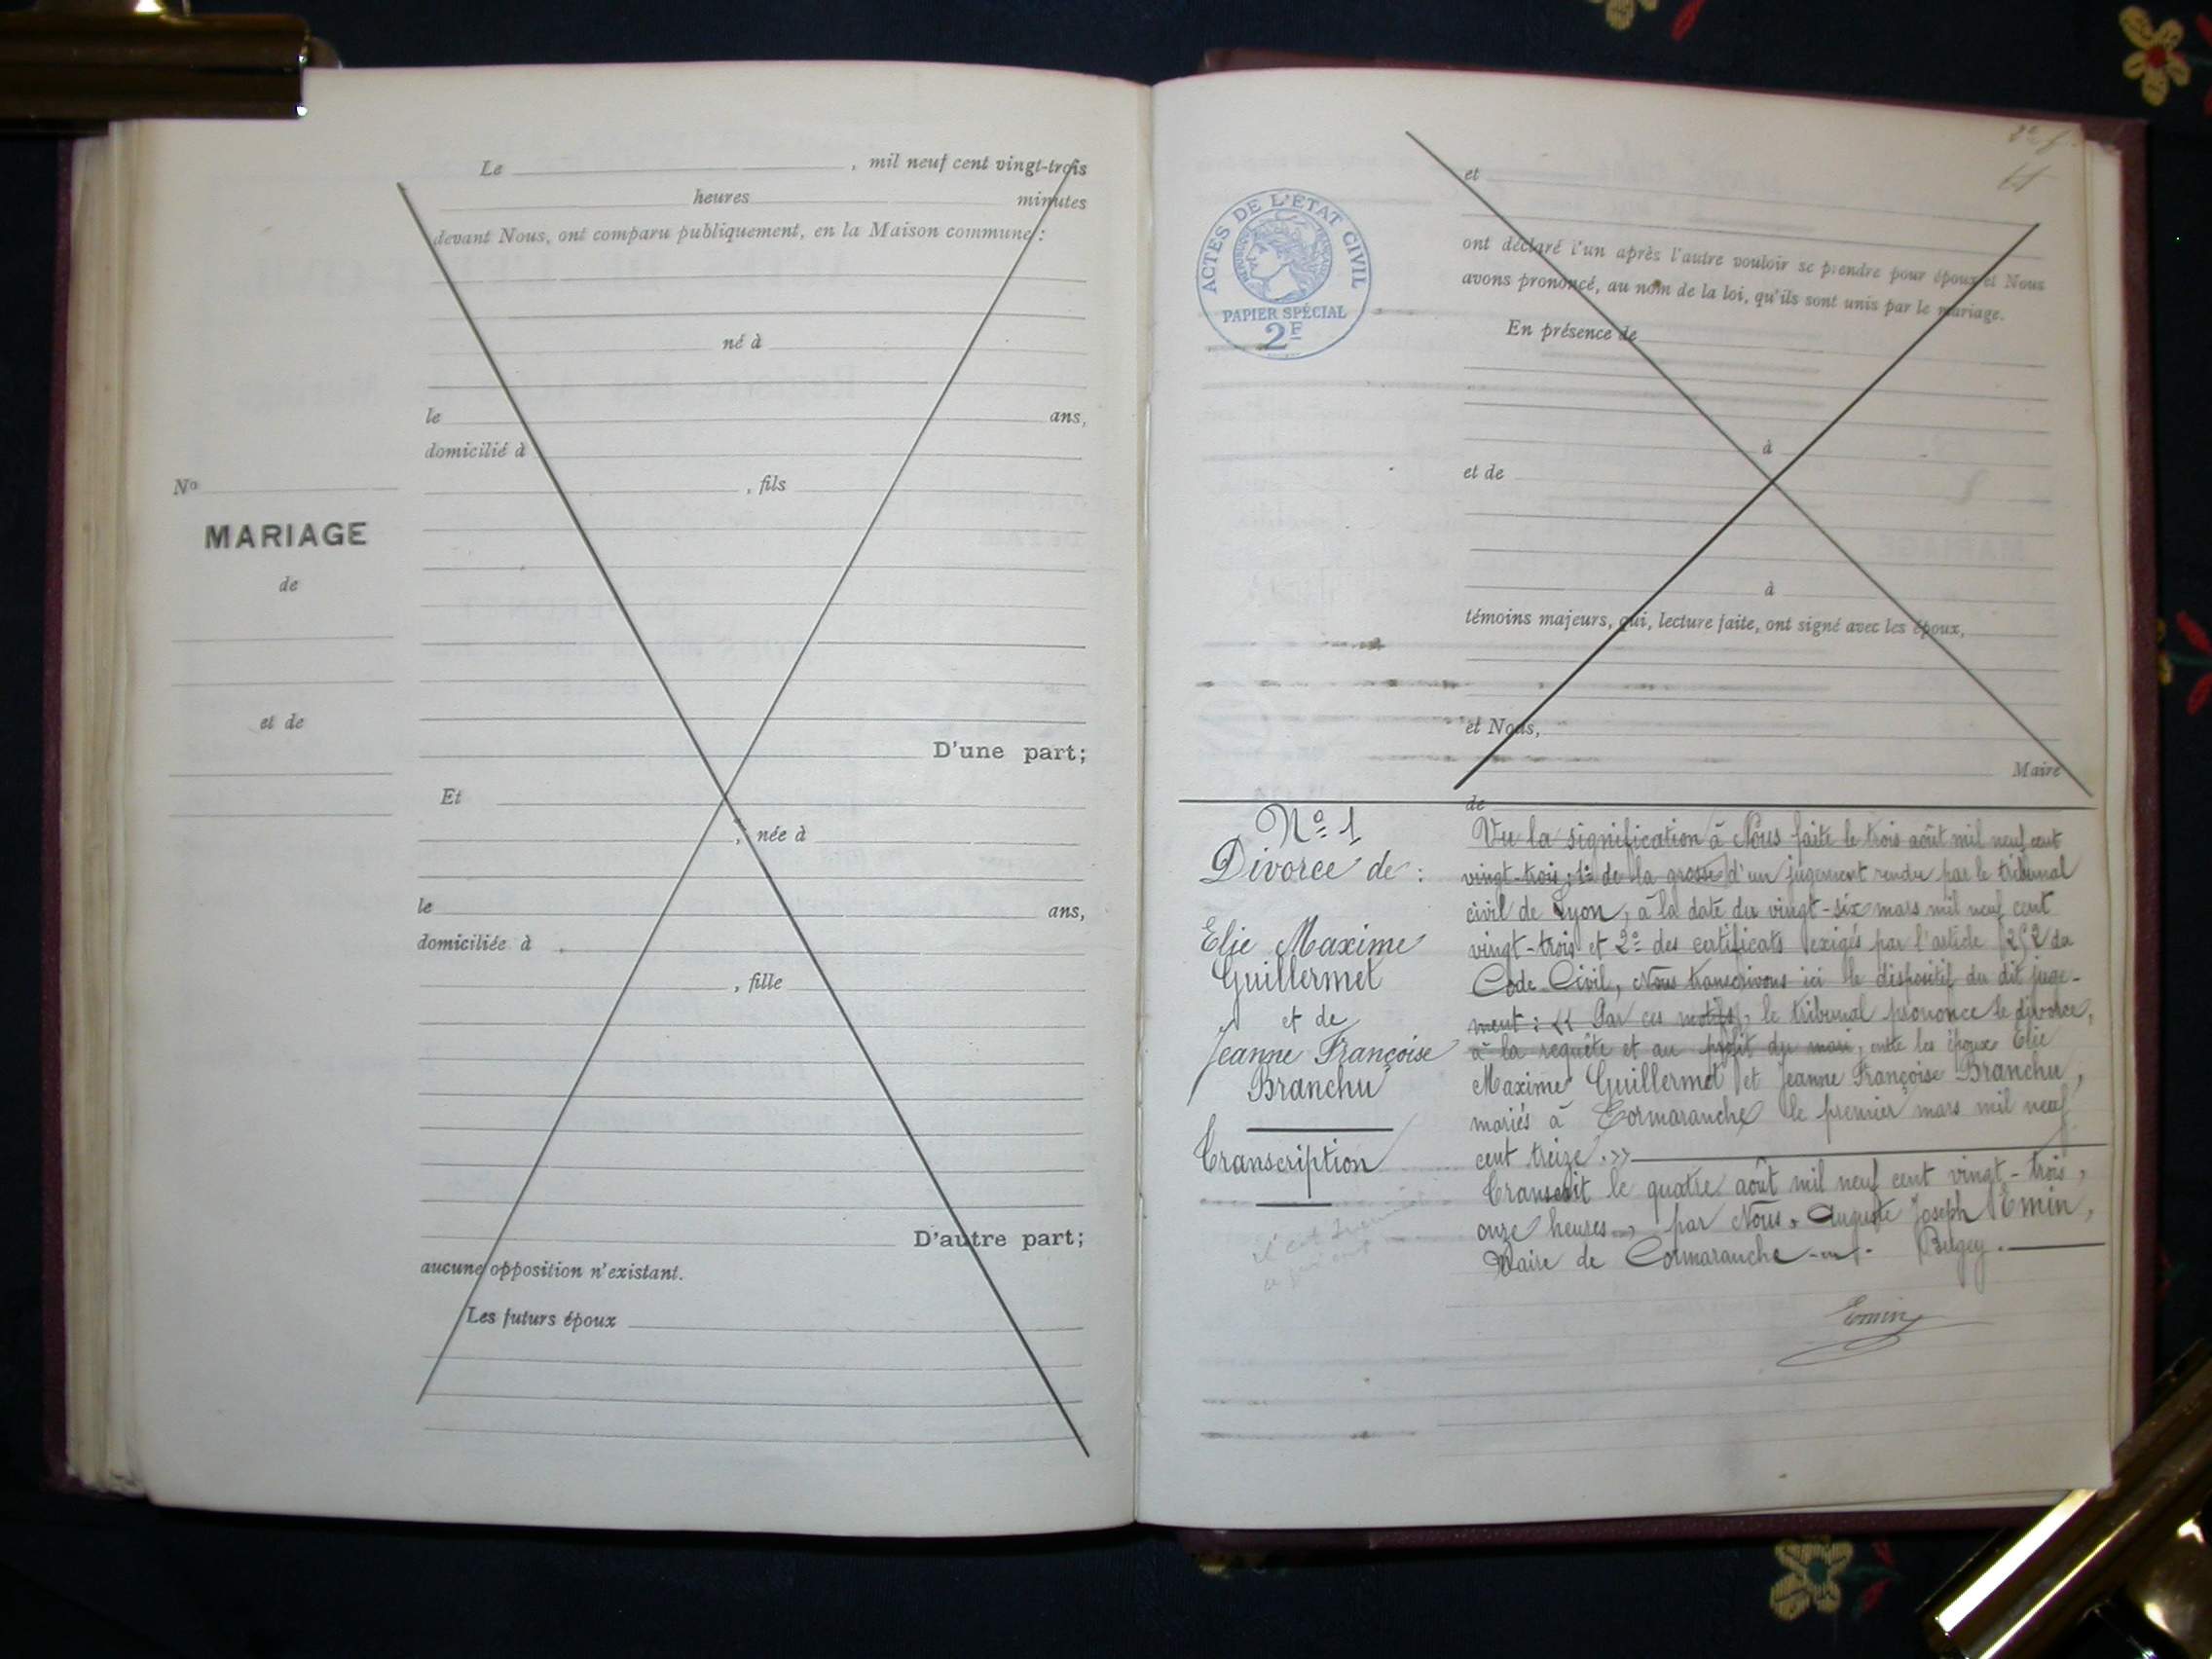 Le , mil neuf cent vingt-trois
heures minutes
devant Nous, ont comparu publiquement, en la Maison commune :
né à
le ans,
domicilié à
, fils
No
MARIAGE
de
et de
D'une part;
Et
, née à
le ans,
domiciliée à
, fille
D'autre part;
aucune opposition n'existant.
Les futurs époux
ACTES DE L'ÉTAT CIVIL
RÉPUBLIQUE FRANÇAISE
PAPIER SPÉCIAL
2F
et
ont déclaré l'un après l'autre vouloir se prendre pour époux et Nous
avons prononcé, au nom de la loi, qu'ils sont unis par le mariage.
En présence de
à
et de
à
témoins majeurs, qui, lecture faite, ont signé avec les époux,
et Nous,
Maire
de
No 1
Divorce de :
Elie Maxime
Guillermet
et de
Jeanne Françoise
Branchu
Transcription
Vu la signification à Nous faite le trois août mil neuf cent
vingt-trois, 1o de la grosse d'un jugement rendu par le tribunal
civil de Lyon, à la date du vingt-six mars mil neuf cent
vingt-trois et 2o des certificats exigés par l'article 252 du
Code Civil, Nous transcrivons ici le dispositif du dit juge-
ment : << Par ces motifs, le tribunal prononce le divorce,
à la requête et au profit du mari, entre les époux Elie
Maxime Guillermet et Jeanne Françoise Branchu,
mariés à Cormaranche le premier mars mil neuf
cent treize. >>
Transcrit le quatre août mil neuf cent vingt-trois,
onze heures, par Nous, Auguste Joseph Emin,
Maire de Cormaranche-en-Bugey.
Emin